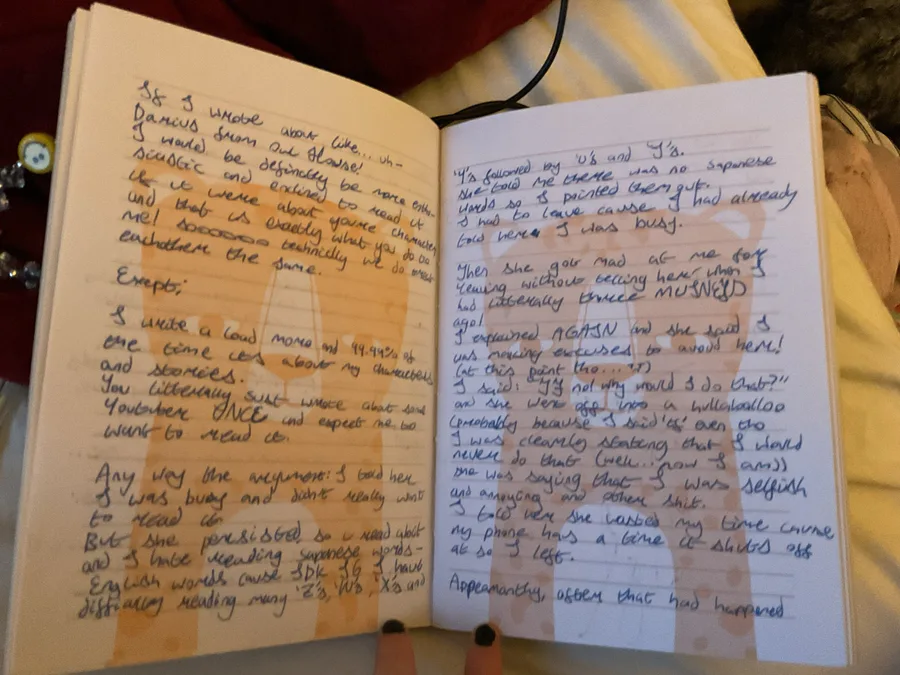 If I wrote about like... uh-
Darius from out House!
I would be definitly be more enthu-
siastic and enclined to read it
if it were about youre character
and that is exactly what you do do
me! soooooooo technically we do
eachothere the same.
Except;
I write a load more and 99.99% of
the time its about my characters
and stories.
You litterally just wrote about some
Youtuber ONCE and expect me too
want to read it.
Any way the argument: I told her
I was busy and didnt really want
to read it.
But she persisted, so u read about
and I hate reading Japanese words-
English words cause IDK I have
difficulty reading many 'Z's, 'W's, 'X's and
'Y's followed by 'U's and 'I's.
She told me there was no Japanese
words so I pointed them out.
I had to leave cause I had already
told here I was busy.
Then she got mad at me for
leaving without telling here when I
had litterally thrice MUINEUD
ago!
I explained AGAIN and she said I
was making excuses to avoid here!
(at this point tho...
I said: "If not why would I do that?"
and she were off into a hullaballoo
(probably because I said 'if' even tho
I was clearly stating that I would
never do that (well... now I am))
she was saying that I was selfish
and annoying and other shit.
I told her she wasted my time cause
my phone has a time it shuts off
at so I left.
Appearanthy, after that had happened